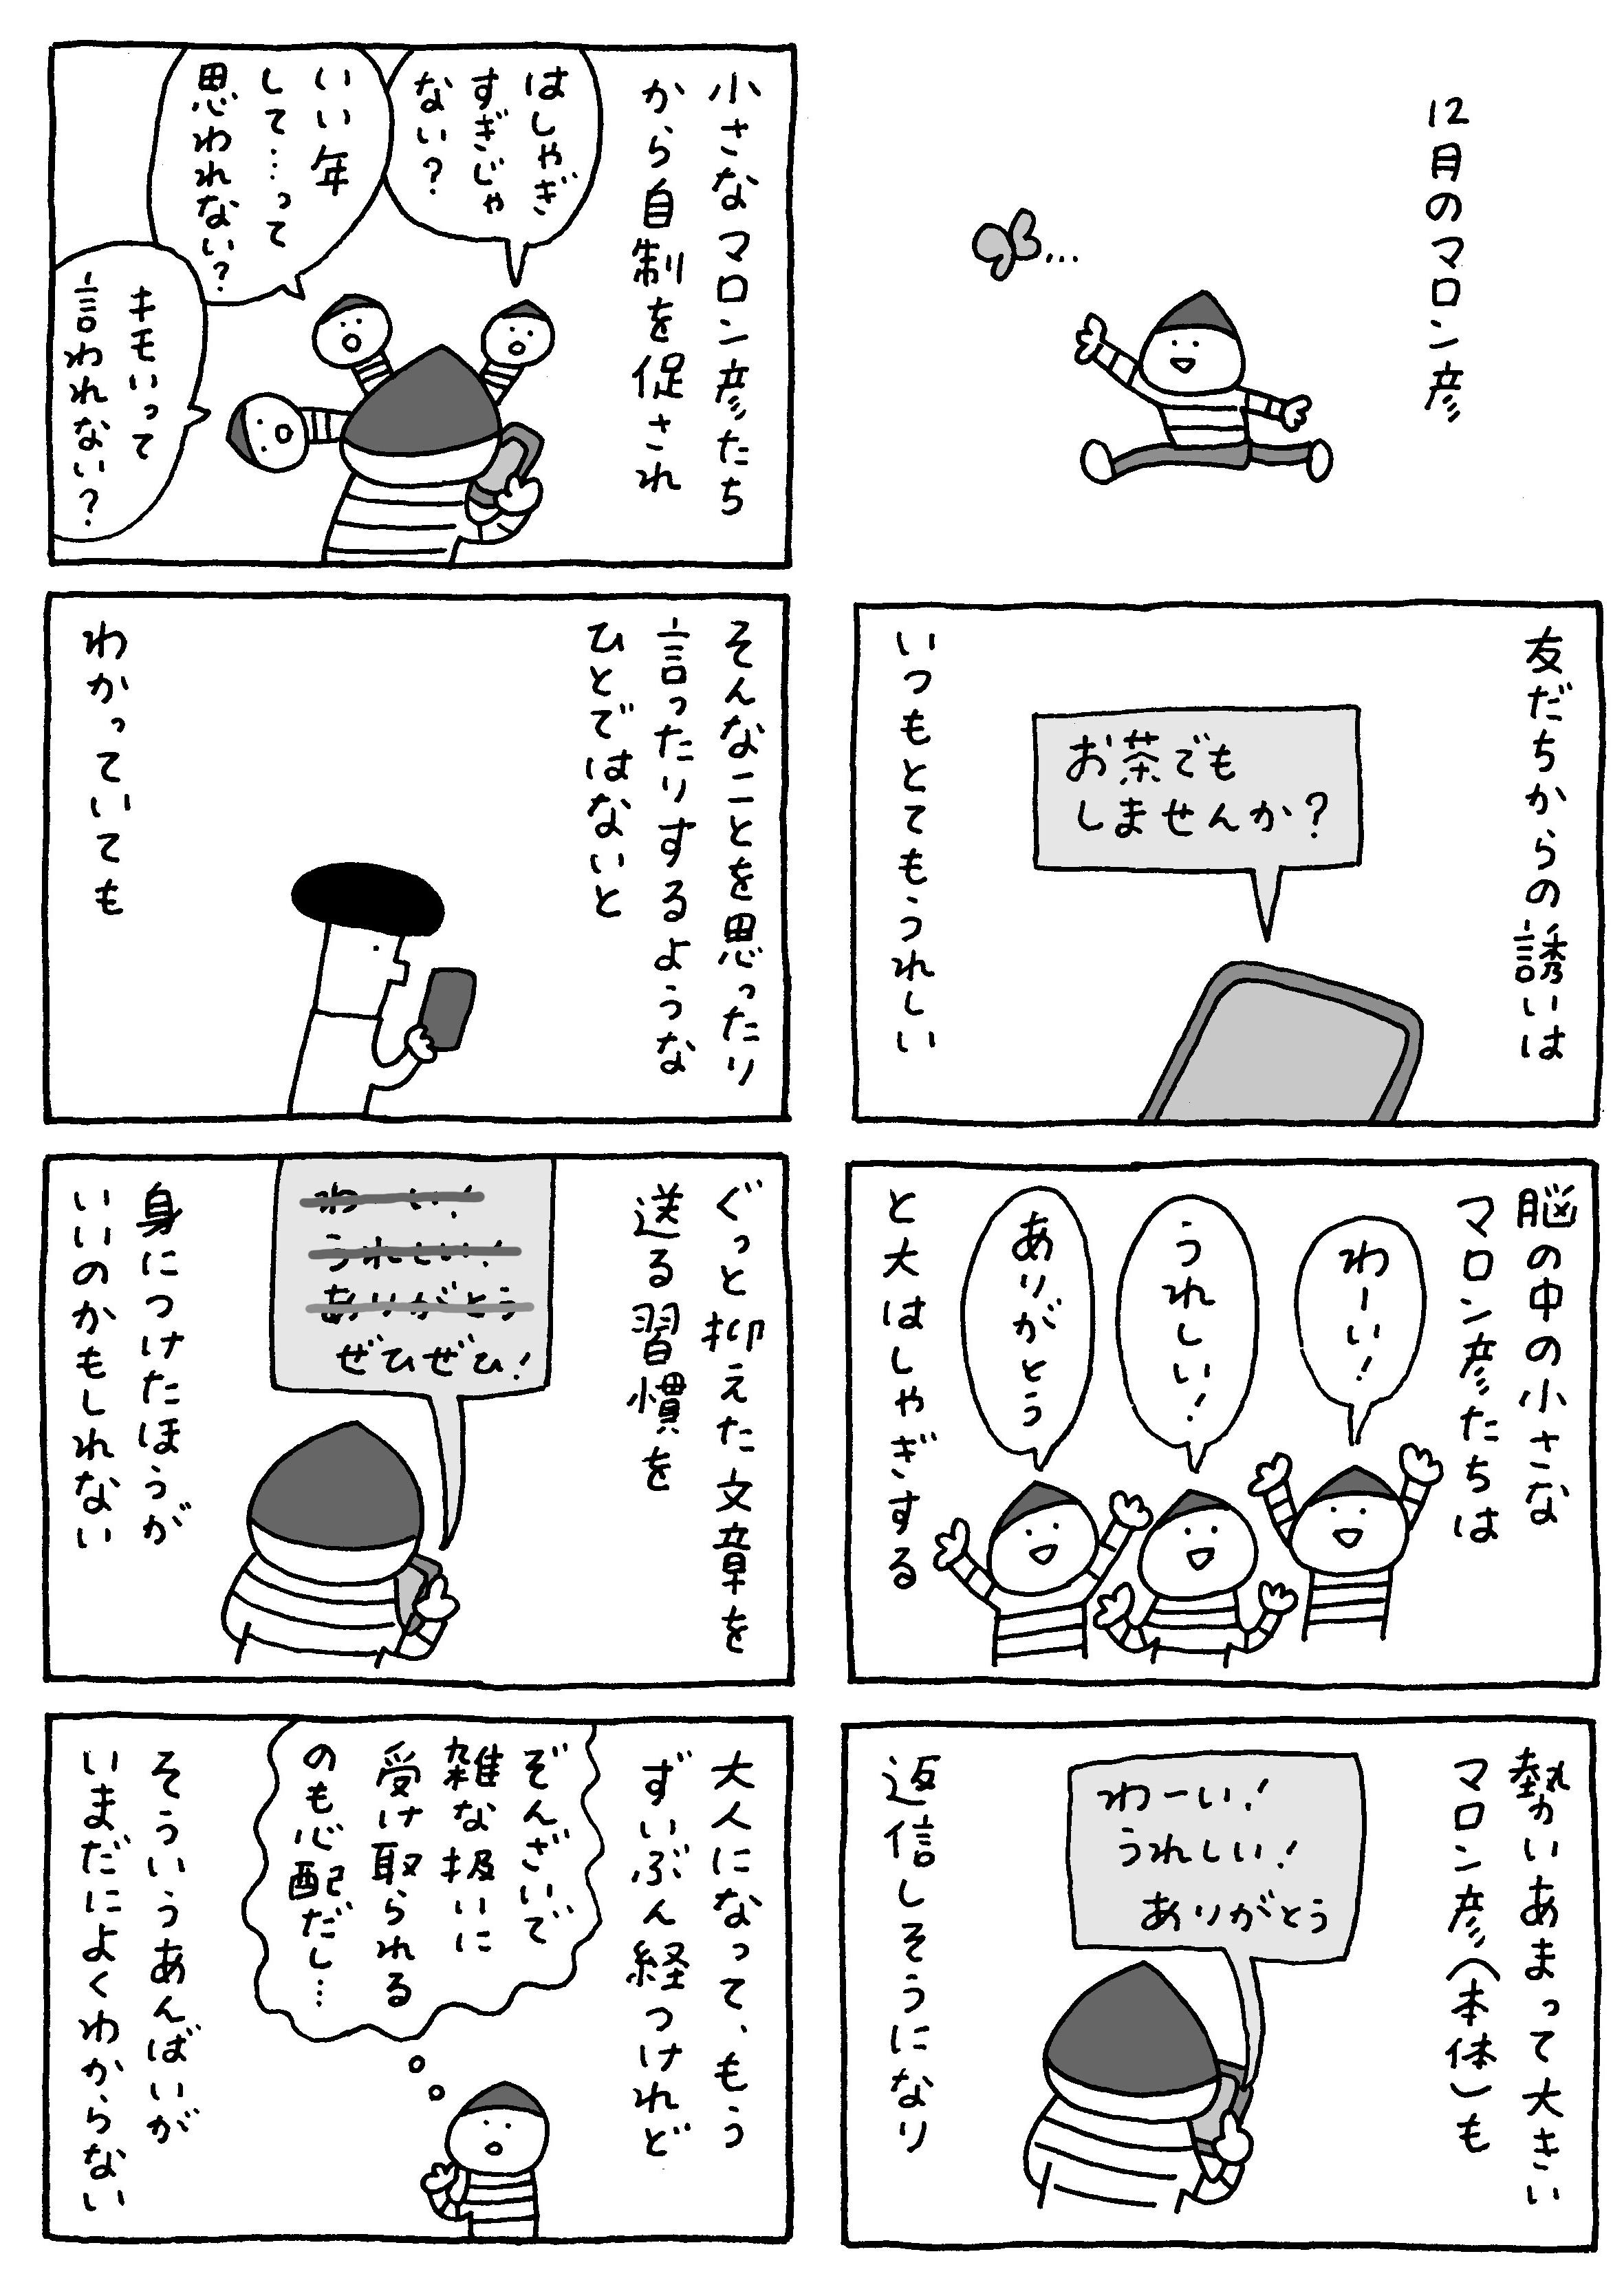 12月のマロン彦
友だちからの誘いは
お茶でも
しませんか？
いつもとてもうれしい
脳の中の小さな
マロン彦たちは
わーい！
うれしい！
ありがとう
と大はしゃぎする
勢いあまって大きい
マロン彦（本体）も
わーい！
うれしい！
ありがとう
返信しそうになり
小さなマロン彦たち
から自制を促され
はしゃぎ
すぎじゃ
ない？
いい年
して…って
思われない？
キモいって
言われない？
そんなことを思ったり
言ったりするような
ひとではないと
わかっていても
ぐっと抑えた文章を
送る習慣を
わーい！
うれしい！
ありがとう
ぜひぜひ！
身につけたほうが
いいのかもしれない
大人になって、もう
ずいぶん経つけれど
ぞんざいで
雑な扱いに
受け取られる
のも心配だし…
そういうあんばいが
いまだによくわからない